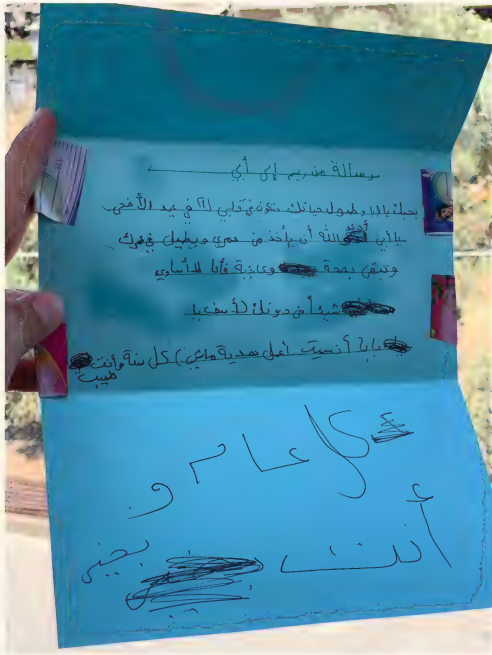 رسالة من ريم إلى أبي
بحبك يا بابا وطول حياتك حتكون في قلبي في عيد الأضحى
يا أبي الله أن يأخذ من عمري ويطيل في عمرك
وتبقى بصحة وعافية فأنا لا أساوي
شيئا من دونك للأسف يا
بابا أنسيت أعمل هدية ماشي) كل سنة وأنت
طيب
كل عام و
أنت بخير